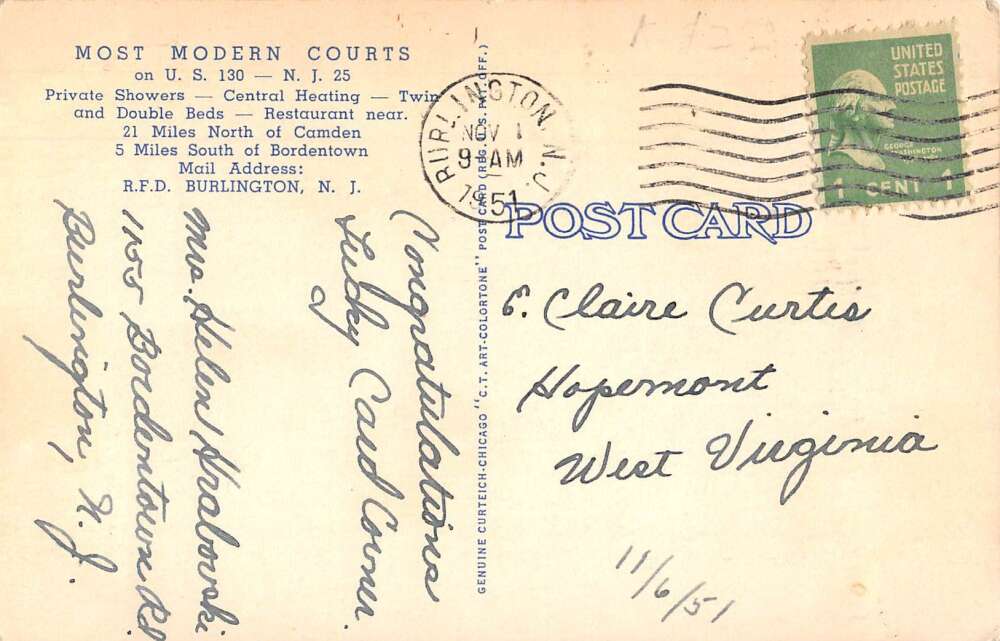 MOST MODERN COURTS
on U. S. 130 — N. J. 25
Private Showers — Central Heating — Twin
and Double Beds — Restaurant near.
21 Miles North of Camden
5 Miles South of Bordentown
Mail Address:
R.F.D. BURLINGTON, N. J.
Congratulations
Lucky Card Corner.
Mrs. Helen Hrabowski
1155 Bordentown Rd.
Burlington, N. J.
GENUINE CURTEICH-CHICAGO "C.T. ART-COLORTONE" POST CARD (REG. U.S. PAT. OFF.)
BURLINGTON, N.J.
NOV 1
9 AM
1951
UNITED
STATES
POSTAGE
GEORGE
WASHINGTON
1 CENT 1
POST CARD
E. Claire Curtis
Hopemont
West Virginia
11/6/51